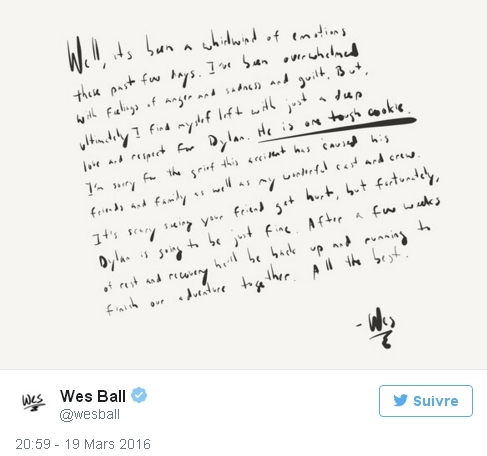 Well, its been a whirlwind of emotions
these past few days. I've been overwhelmed
with feelings of anger and sadness and guilt. But,
ultimately I find myself left with just a deep
love and respect for Dylan. He is one tough cookie.
I'm sorry for the grief this accident has caused his
friends and family as well as my wonderful cast and crew.
It's scary seeing your friend get hurt, but fortunately,
Dylan is going to be just fine. After a few weeks
of rest and recovery he'll be back up and running to
finish our adventure together. All the best.
- Wes
Wes
Wes Ball
@wesball
Suivre
20:59 - 19 Mars 2016